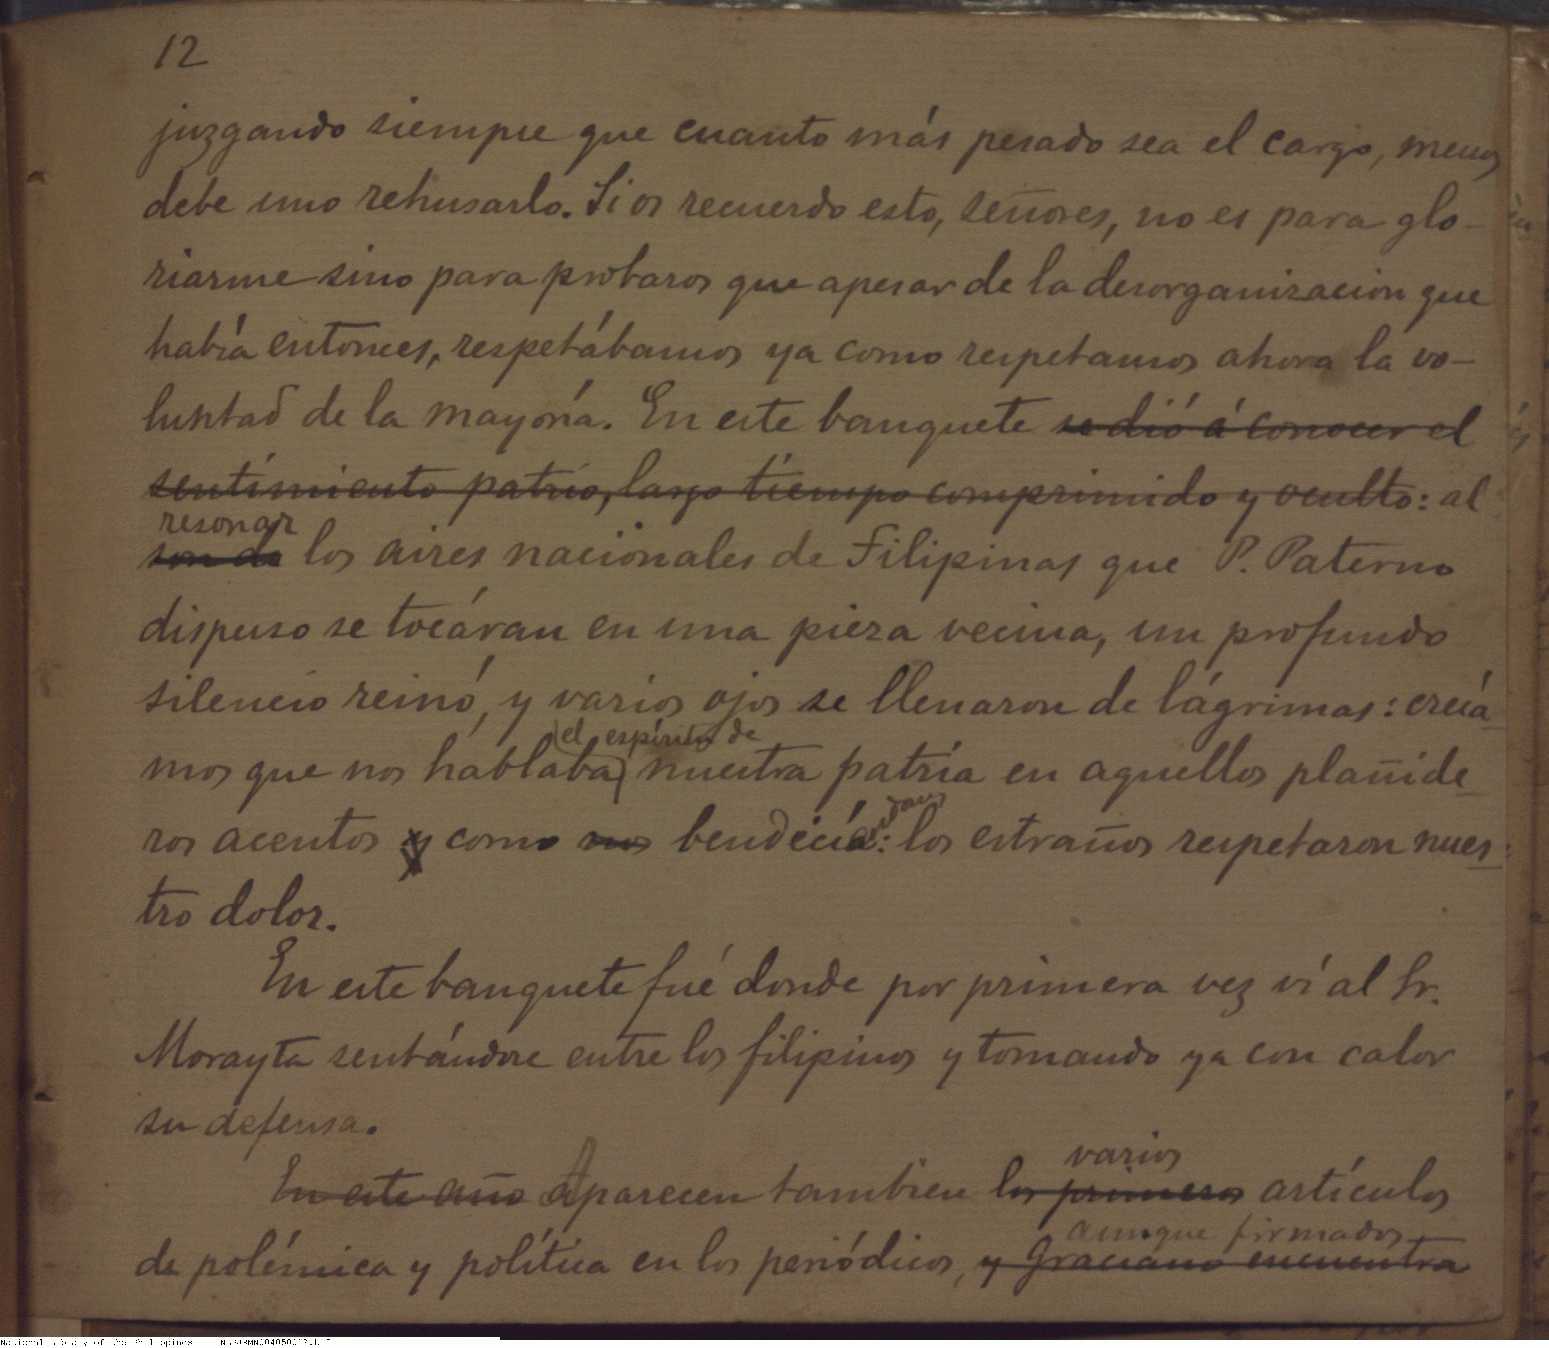 12
juzgando siempre que cuanto más pesado sea el cargo, menos
debe uno rehusarlo. Si os recuerdo esto, señores, no es para glo-
riarme sino para probaros que apesar de la desorganizacion que
había entonces, respetábamos ya como respetamos ahora la vo-
luntad de la mayoría. En este banquete se dió á conocer el
sentimiento patrio, largo tiempo comprimido y oculto: al
resonar
son de los aires nacionales de Filipinas que P. Paterno
dispuso se tocáran en una pieza vecina, un profundo
silencio reinó, y varios ojos se llenaron de lágrimas: creía-
el espíritu de
mos que nos hablaba nuestra patria en aquellos plañide-
ros acentos y como nos bendecía: los estraños respetaron nues-
tro dolor.
En este banquete fué donde por primera vez ví al Sr.
Morayta sentándose entre los filipinos y tomando ya con calor
su defensa.
varios
En este año Aparecen tambien los primeros artículos
aunque firmados
de polémica y política en los periódicos, y Graciano encuentra
National Library of the Philippines